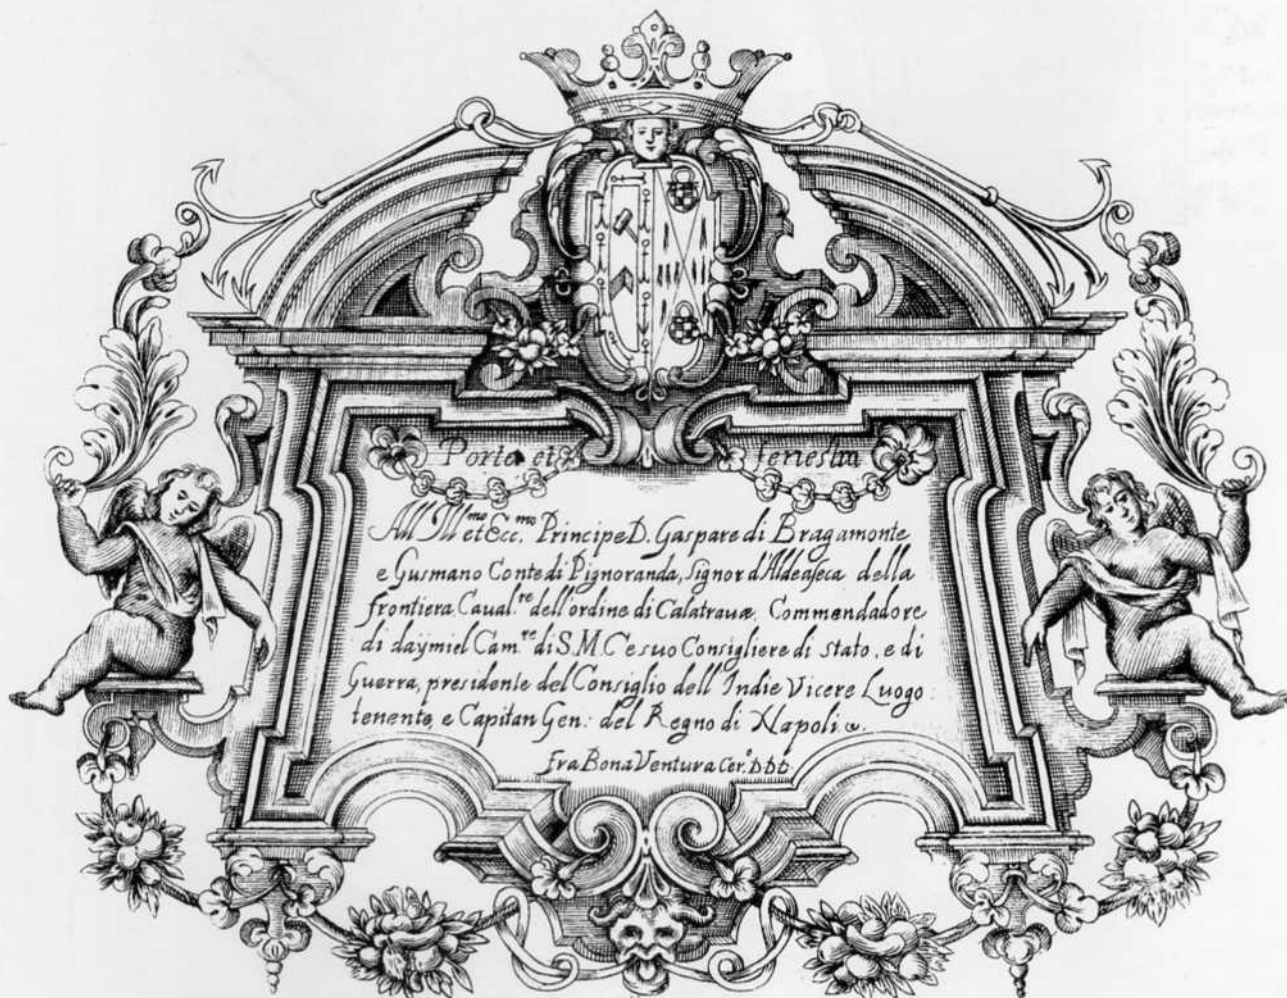 Porte et fenestra
All' Ill^mo et Ecc.^mo Principe D. Gaspare di Bragamonte
e Gusmano Conte di Pignoranda, signor d'Aldeaseca della
frontiera Caual.^re dell'ordine di Calatraua, Commendadore
di daymiel Cam.^re di S.M.C e suo Consigliere di stato, e di
Guerra, presidente del Consiglio dell'Indie Vicere Luogo:
tenente, e Capitan Gen: del Regno di Napoli
fra Bona Ventura Cer.° D D D.